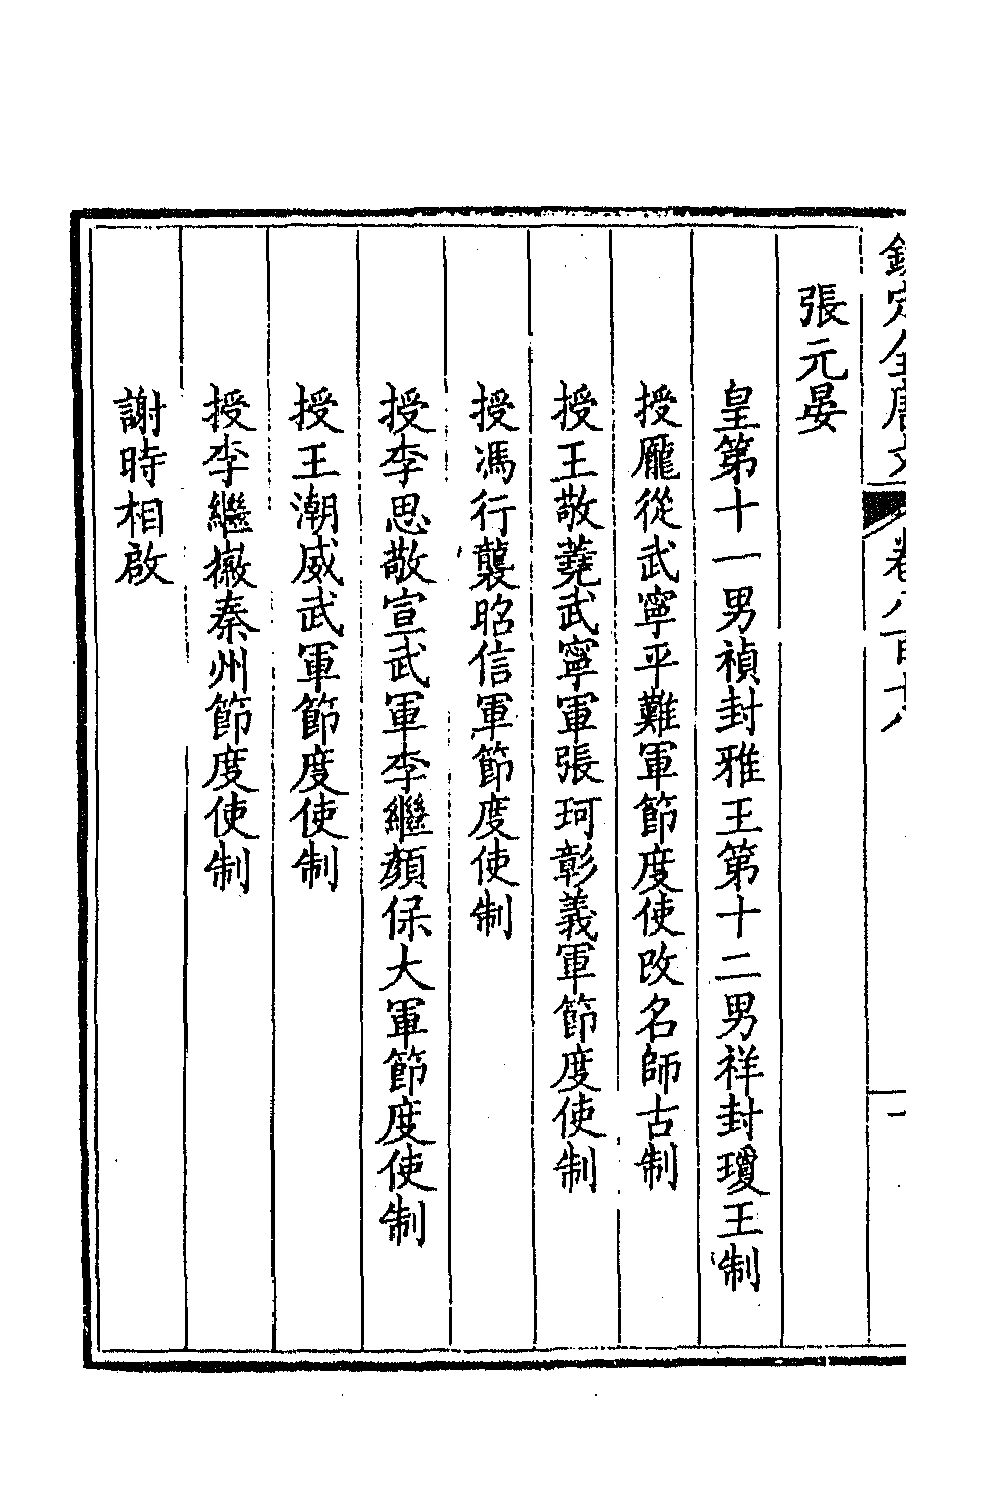 欽定全唐文 卷八百十八 一
張元晏
皇第十一男禎封雅王第十二男祥封瓊王制
授龐從武寧平難軍節度使改名師古制
授王敬蕘武寧軍張珂彰義軍節度使制
授馮行襲昭信軍節度使制
授李思敬宣武軍李繼顏保大軍節度使制
授王潮威武軍節度使制
授李繼擻秦州節度使制
謝時相啟